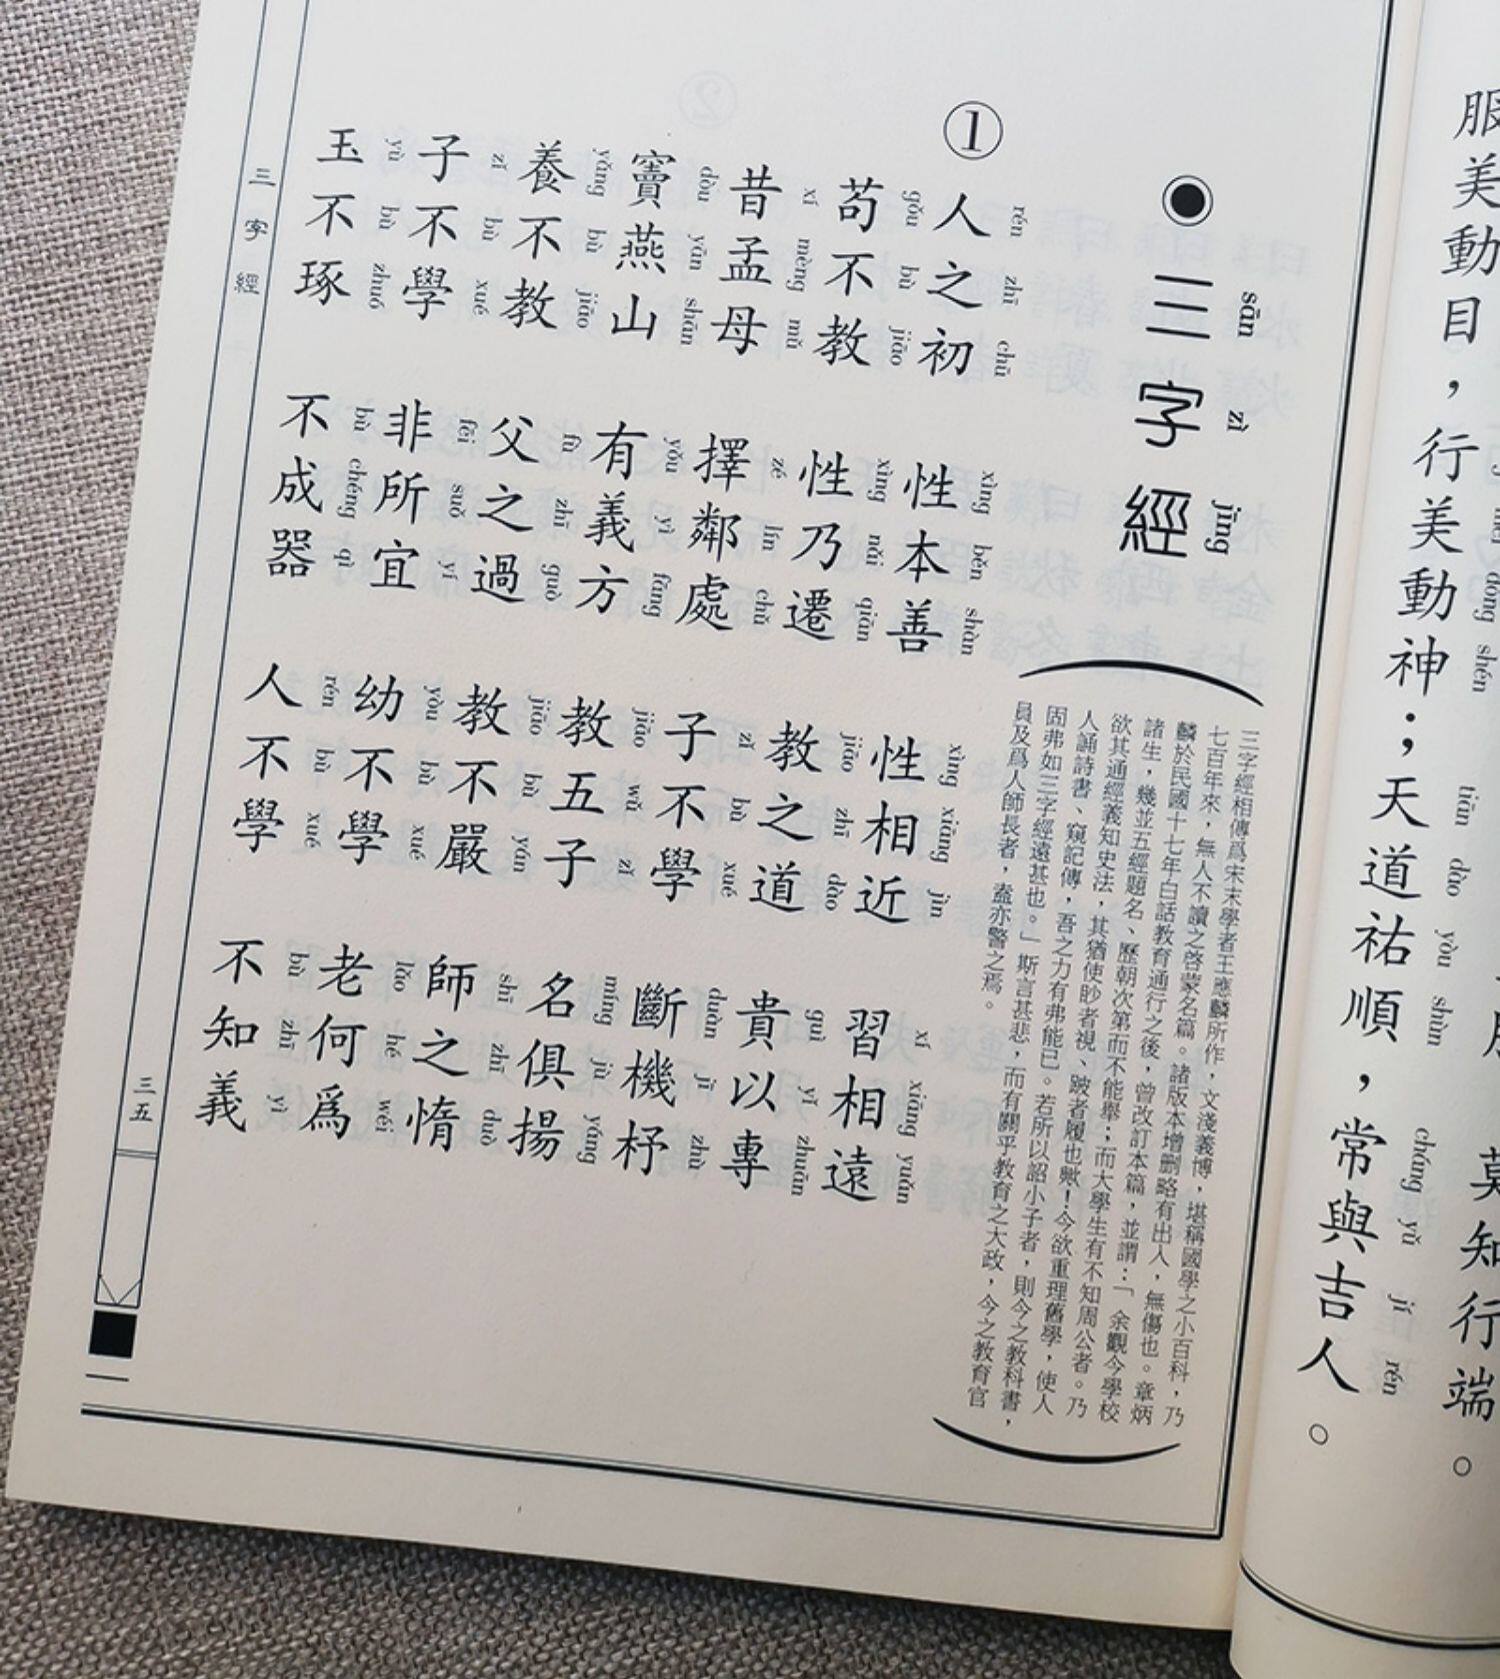 莫知行端。
dòng shén tiān dào yòu shùn cháng yǔ jí rén
服美動目，行美動神；天道祐順，常與吉人。
sān zì jīng
◉三字經
（三字經相傳爲宋末學者王應麟所作，文淺義博，堪稱國學之小百科，乃
七百年來，無人不讀之啓蒙名篇。諸版本增刪略有出入，無傷也。章炳
麟於民國十七年白話教育通行之後，曾改訂本篇，並謂：「余觀今學校
諸生，幾並五經題名、歷朝次第而不能舉；而大學生有不知周公者。乃
欲其通經義知史法，其猶使眇者視、跛者履也歟！今欲重理舊學，使人
人誦詩書、窺記傳，吾之力有弗能已。若所以詔小子者，則今之教科書，
固弗如三字經遠甚也。」斯言甚悲，而有關乎教育之大政，今之教育官
員及爲人師長者，盍亦警之焉。）
①
rén zhī chū xìng běn shàn xìng xiāng jìn xí xiāng yuǎn
人之初 性本善 性相近 習相遠
gǒu bù jiāo xìng nǎi qiān jiāo zhī dào guì yǐ zhuān
苟不教 性乃遷 教之道 貴以專
xí mèng mǔ zé lín chǔ zǐ bù xué duàn jī zhù
昔孟母 擇鄰處 子不學 斷機杼
dòu yān shān yǒu yì fāng jiāo wǔ zǐ míng jù yáng
竇燕山 有義方 教五子 名俱揚
yǎng bù jiāo fù zhī guò jiāo bù yán shī zhī duò
養不教 父之過 教不嚴 師之惰
zǐ bù xué fēi suǒ yí yòu bù xué lǎo hé wéi
子不學 非所宜 幼不學 老何爲
yù bù zhuó bù chéng qì rén bù xué bù zhī yì
玉不琢 不成器 人不學 不知義
三字經
三五